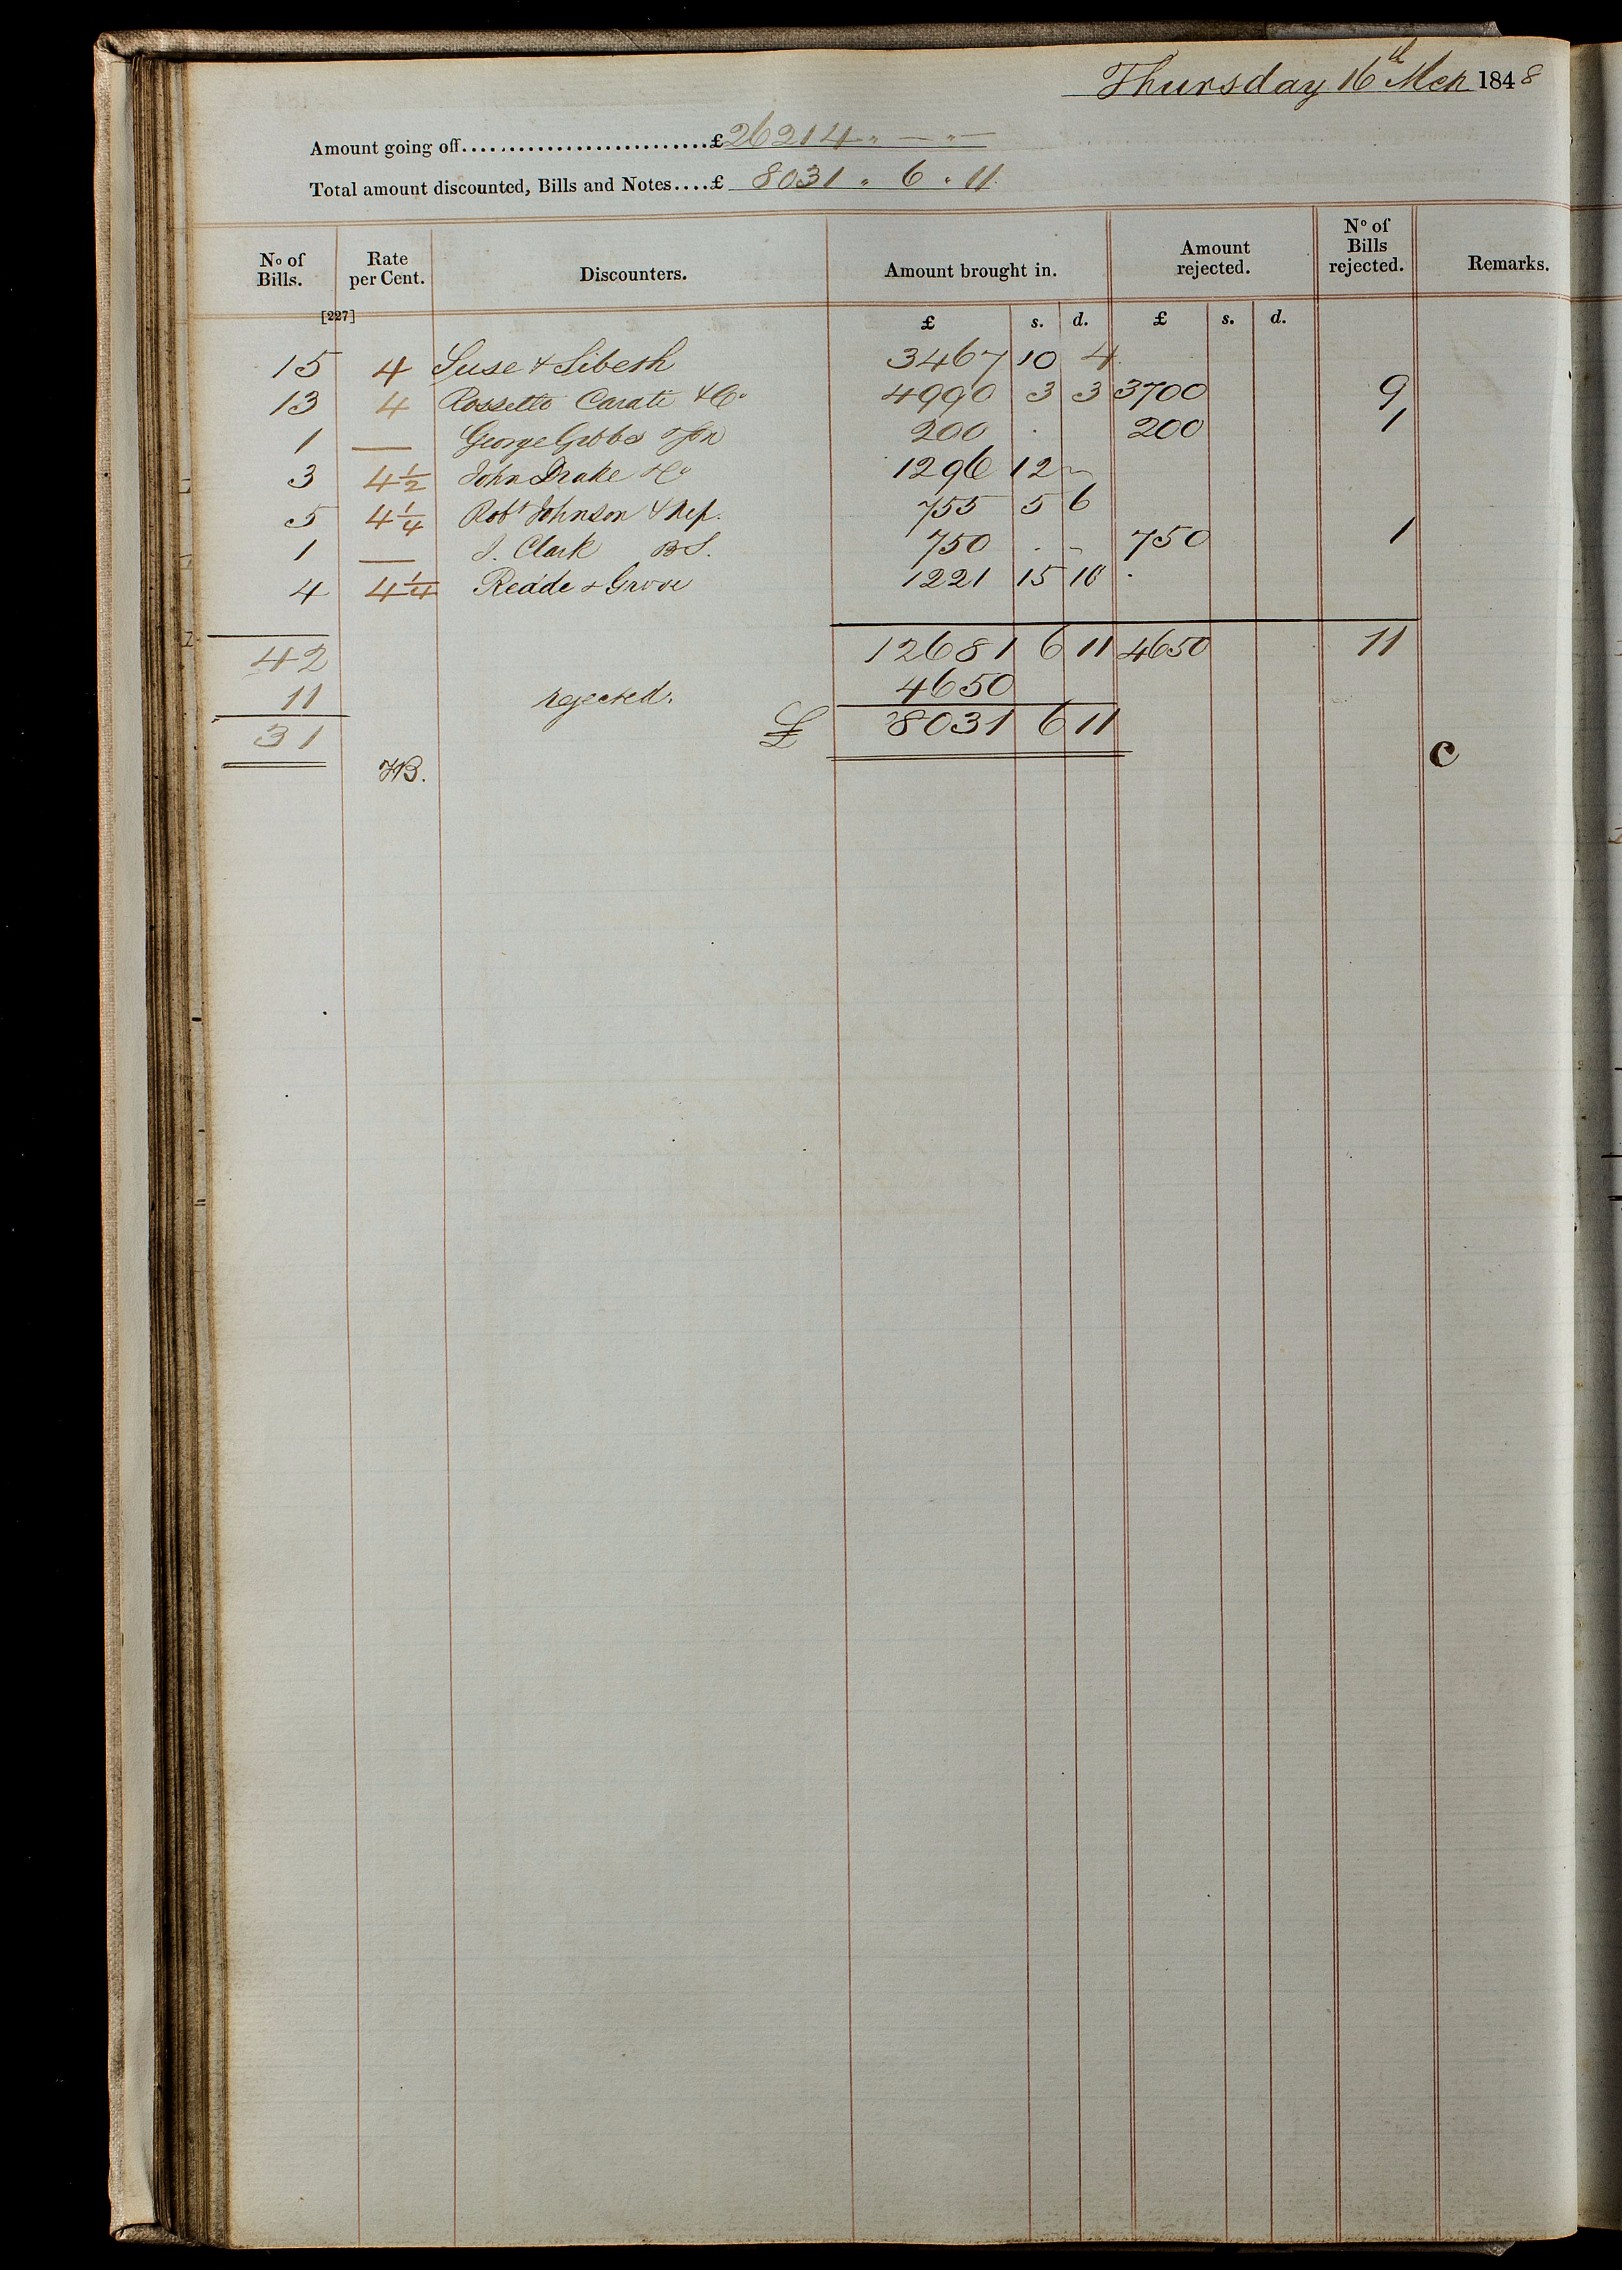 Thursday 16th Mch 1848
Amount going off..........................£ 26214 " — " —
Total amount discounted, Bills and Notes....£ 8031 " 6 " 11.
No of Bills. Rate per Cent. Discounters. Amount brought in. Amount rejected. No of Bills rejected. Remarks.
[227] £ s. d. £ s. d.
15 4 Suse & Sibeth 3467 10 4
13 4 Rossetto Carati & Co 4990 3 3 3700 9
1 — George Gibbs & Son 200 200 1
3 4½ John Drake & Co 1296 12 -
5 4¼ Robt Johnson & Nep. 755 5 6
1 — J. Clark BS. 750 . - 750 1
4 4¼ Reade & Grove 1221 15 10
42 12681 6 11 4650 11
11 rejected. 4650
31 £ 8031 6 11
HB. C